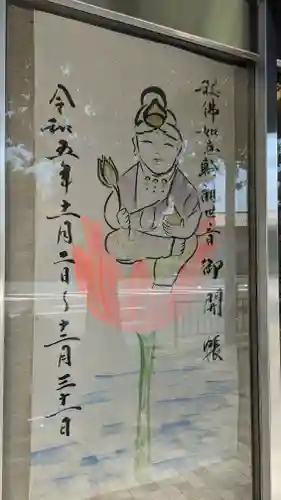 秘佛如意輪観世音御開帳
令和五年十一月二日〜十二月三十一日